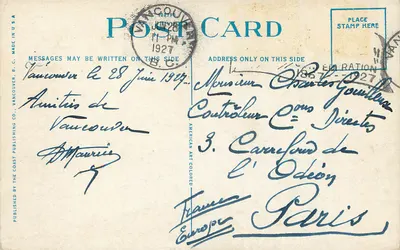 POST CARD
PLACE
STAMP HERE
VANCOUVER
JUN 28
11 - PM
1927
B.C.
1867 - 1927
MESSAGES MAY BE WRITTEN ON THIS SIDE
ADDRESS ONLY ON THIS SIDE
Vancouver le 28 Juin 1927
Amitiés de
Vancouver
Maurice
Monsieur Charles
Contrôleur Cons Directes
3. Carrefour de
l'Odéon
Paris
France
Europe
PUBLISHED BY THE COAST PUBLISHING CO., VANCOUVER, B.C. MADE IN U.S.A.
AMERICAN ART COLORED